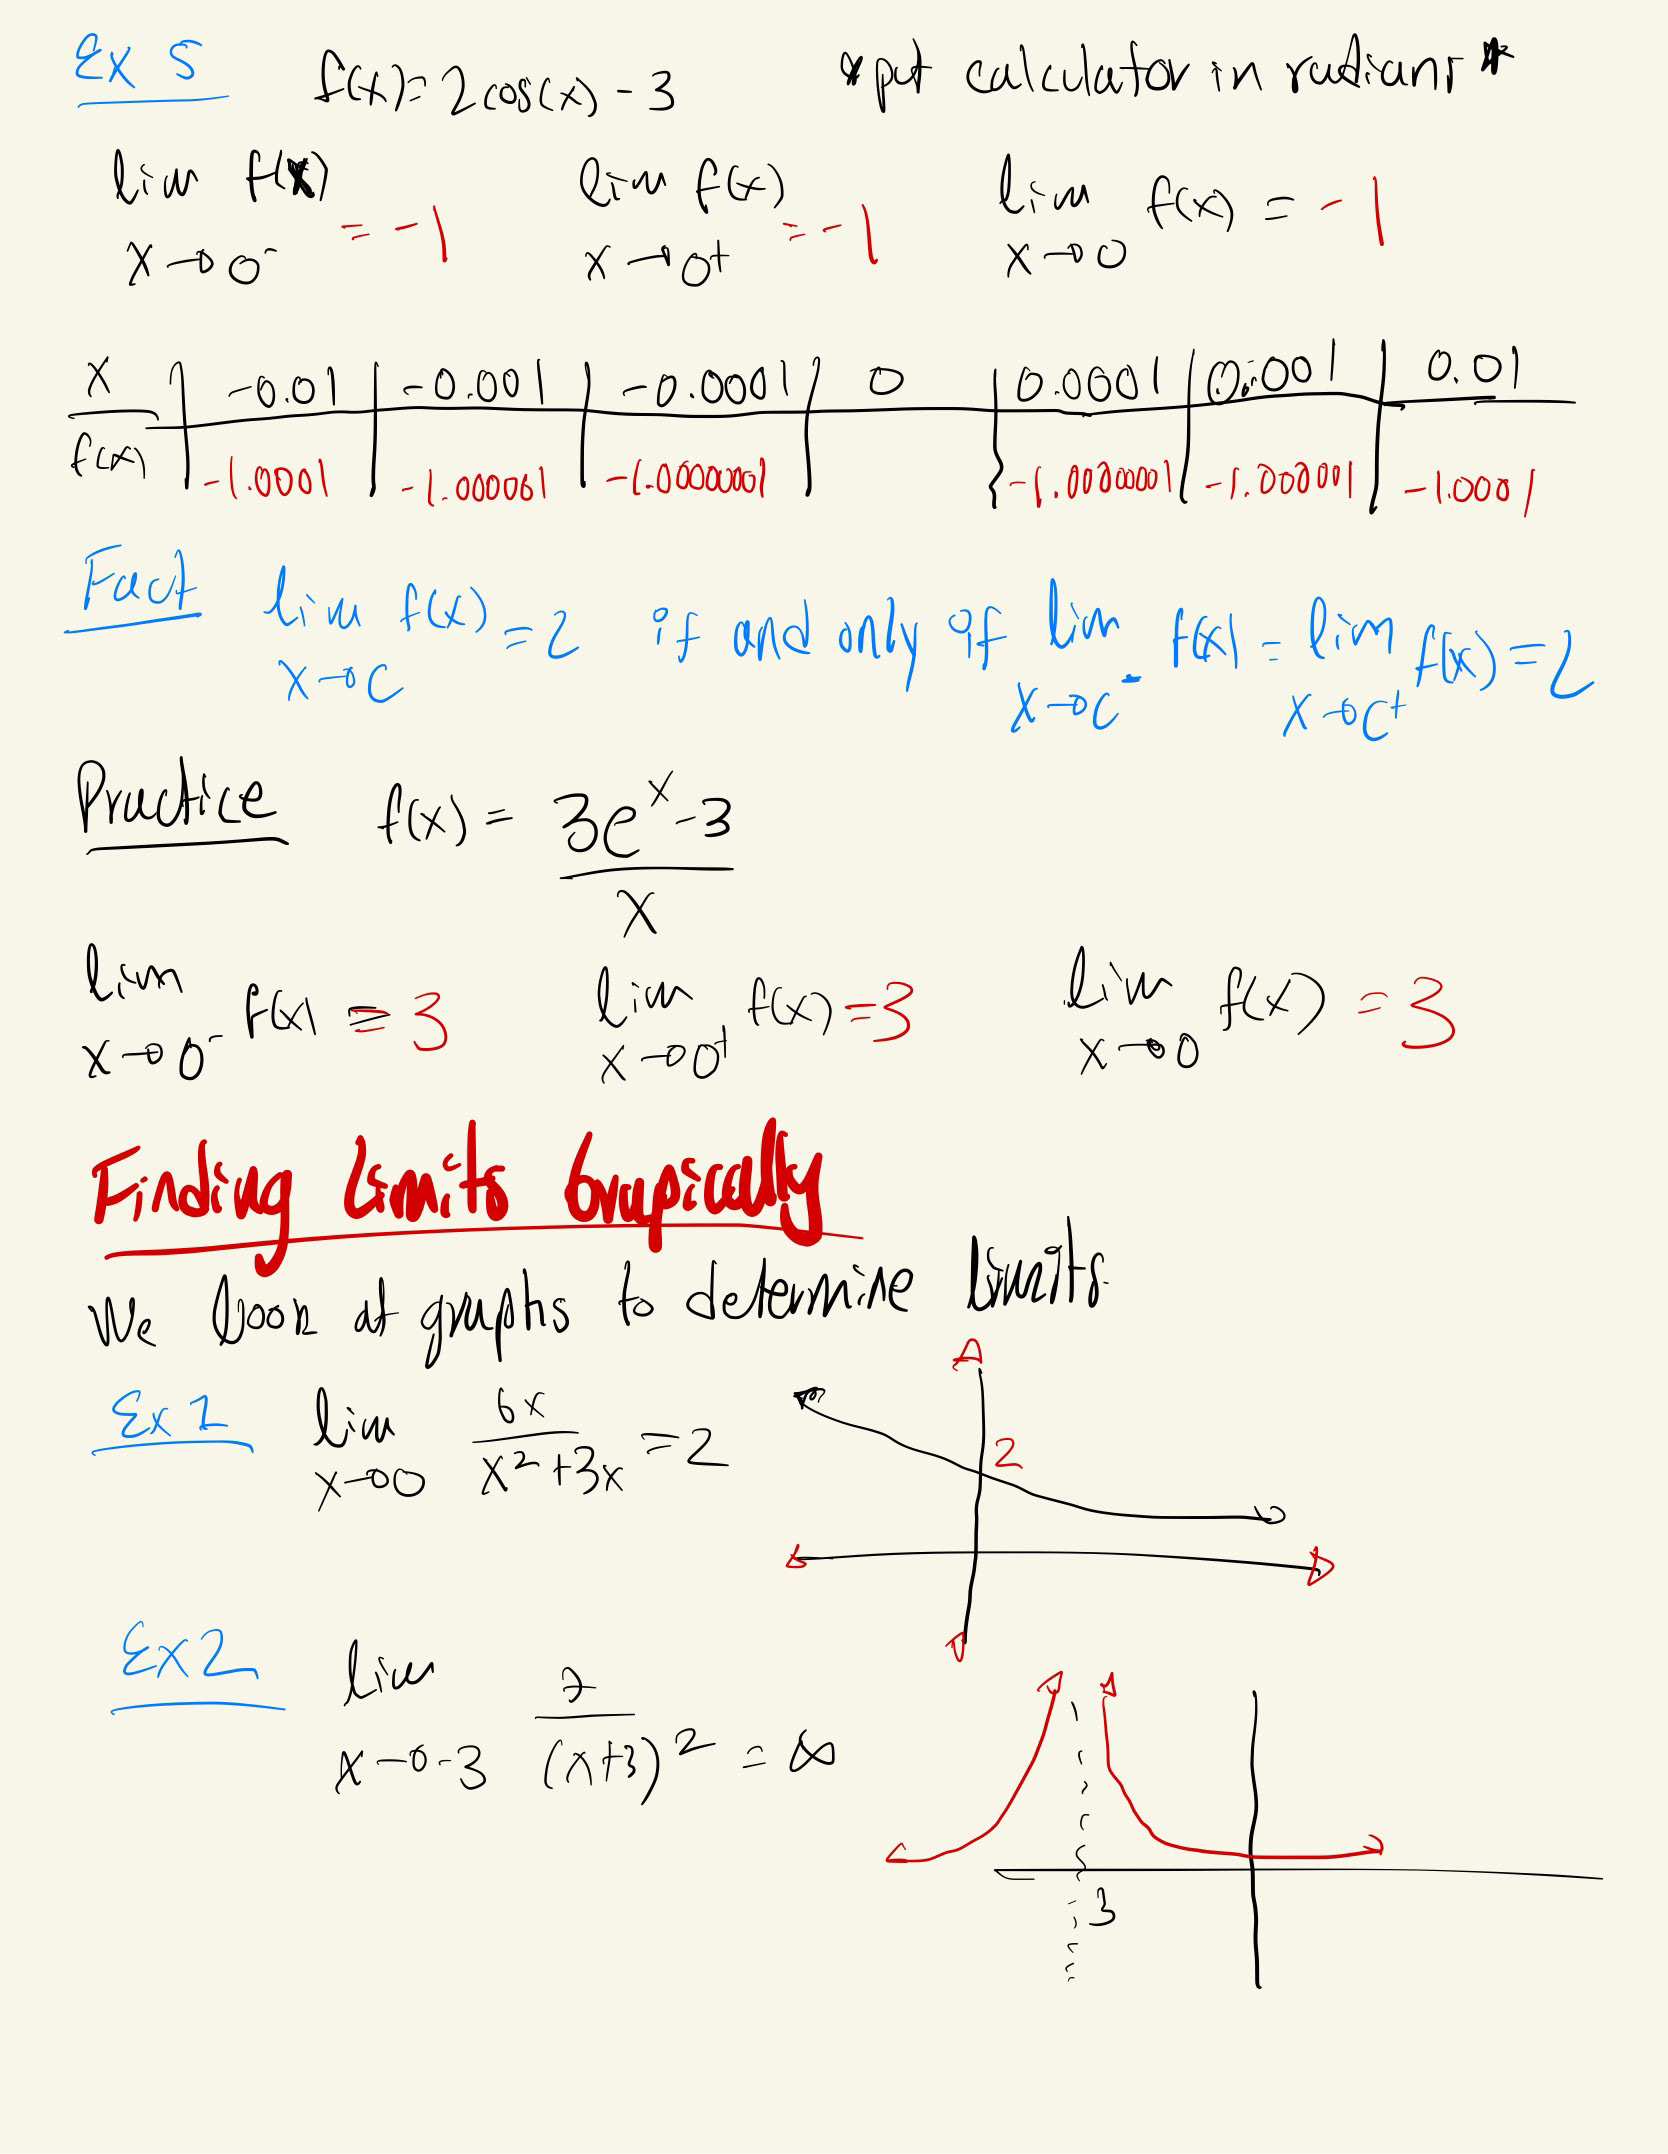 Ex 5 f(x)=2cos(x)-3 *put calculator in radians*
lim f(x) = -1 lim f(x) = -1 lim f(x) = -1
x→0⁻ x→0⁺ x→0
x -0.01 -0.001 -0.0001 0 0.0001 0.001 0.01
f(x) -1.0001 -1.000001 -1.00000001 -1.00000001 -1.000001 -1.0001
Fact lim f(x) = 2 if and only if lim f(x) = lim f(x) = 2
x→c x→c⁻ x→c⁺
Practice f(x) = 3eˣ-3
x
lim f(x) = 3 lim f(x) = 3 lim f(x) = 3
x→0⁻ x→0⁺ x→0
Finding Limits Grapically
We look at graphs to determine limits.
Ex 1 lim 6x = 2
x→0 x²+3x
2
Ex 2 lim 2
x→-3 (x+3)² = ∞
-3